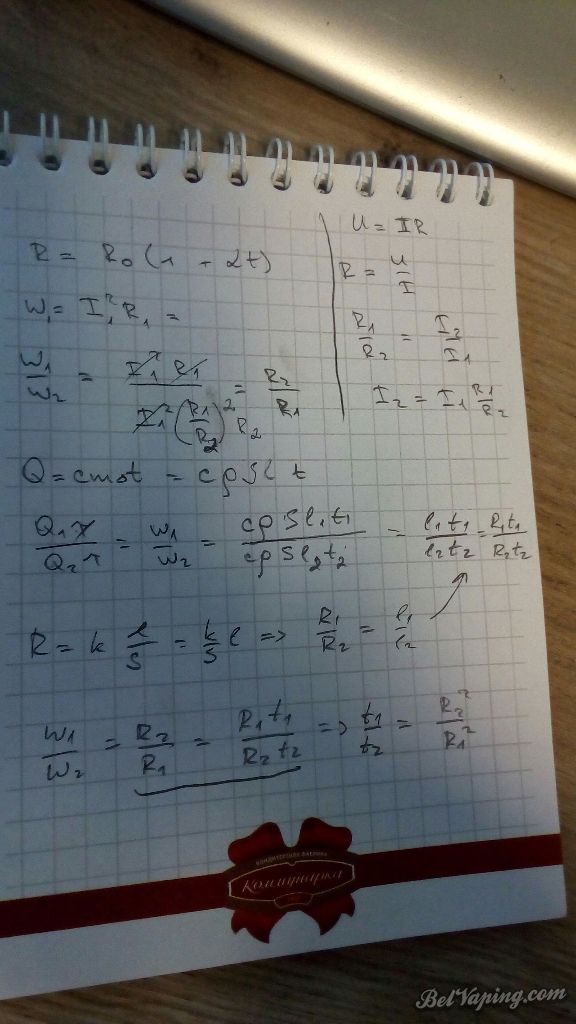 R = R₀ (1 + αt)
W₁ = I₁² R₁ =
W₁/W₂ = I₁² R₁ / I₁² (R₁/R₂)² R₂ = R₂/R₁
U = IR
R = U/I
R₁/R₂ = I₂/I₁
I₂ = I₁ R₁/R₂
Q = cmΔt = cρSl t
Q₁ τ / Q₂ τ = W₁/W₂ = cρSl₁t₁ / cρSl₂t₂ = l₁t₁/l₂t₂ = R₁t₁/R₂t₂
R = k l/S = k/S l => R₁/R₂ = l₁/l₂
W₁/W₂ = R₂/R₁ = R₁t₁/R₂t₂ => t₁/t₂ = R₂²/R₁²
КОНДИТЕРСКАЯ ФАБРИКА
Коммунарка
BelVaping.com